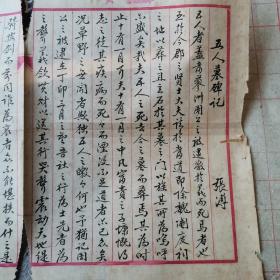 五人墓碑記
張溥
五人者蓋當蓼洲周公之被逮激於義而死焉者也
至於今郡之賢士大夫請於當道即除魏閹廢祠
之址以葬之且立石於其墓之門以旌其所為嗚呼
亦盛矣哉夫五人之死去今之墓而葬焉其為時
止十有一月耳夫十有一月之中凡富貴之子慷慨得
志之徒其疾病而死死而湮沒不足道者亦已眾矣
況草野之無聞者歟獨五人之皦皦何也予猶記周
公之被逮在丁卯三月之望吾社之行為士先者為
之聲義斂貲財以送其行哭聲震動天地緹
騎按劍而前問誰為哀者眾不能堪抶而仆之是